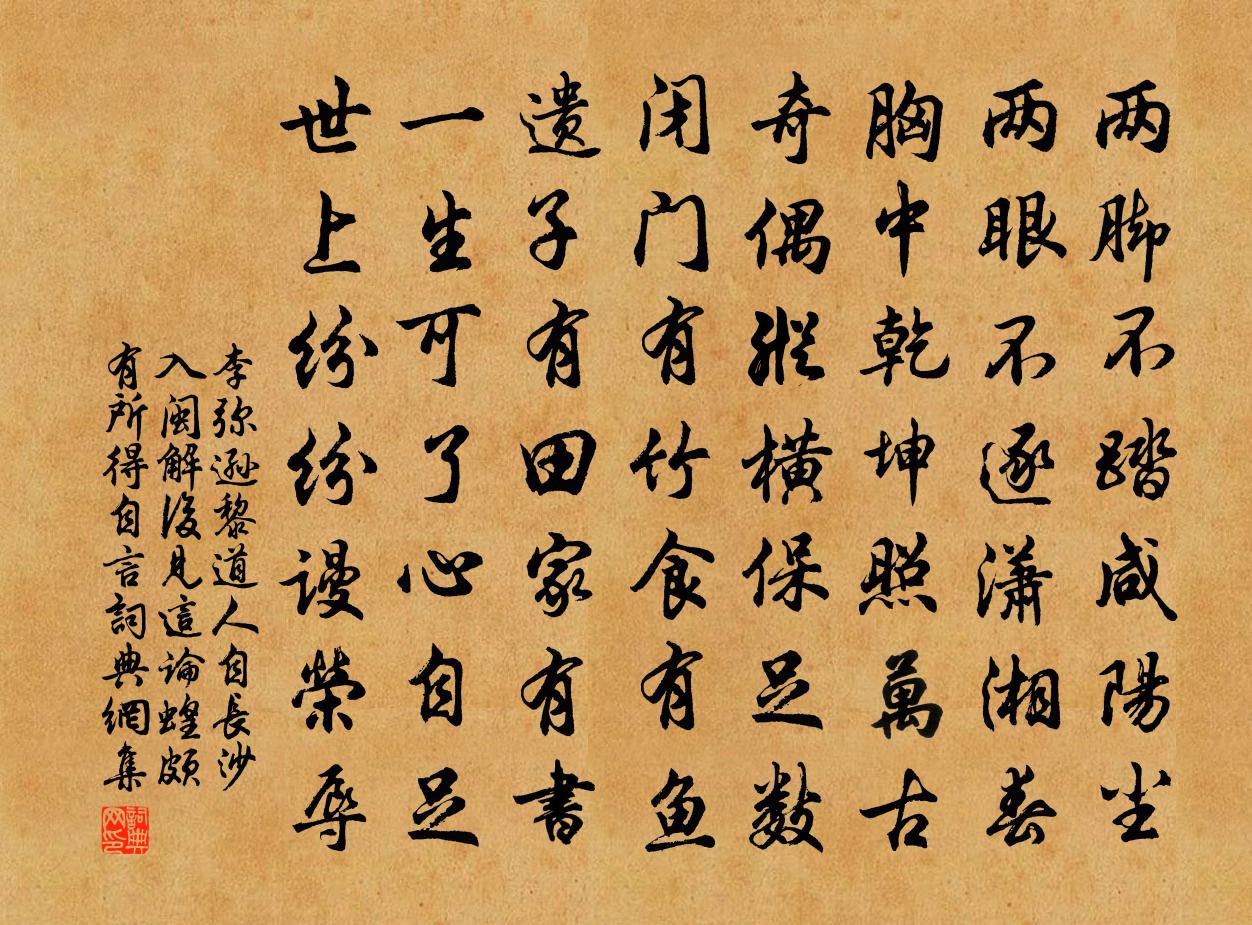 两脚不踏咸陽尘
两眼不逐潇湘春
胸中乾坤照萬古
奇偶縱横保足数
闭门有竹食有鱼
遗子有田家有書
一生可了心自足
世上纷纷谩榮辱
李弥逊黎道人自長沙
入闽解後見這論蝗頗
有所得自言詞典網集
詞典网印